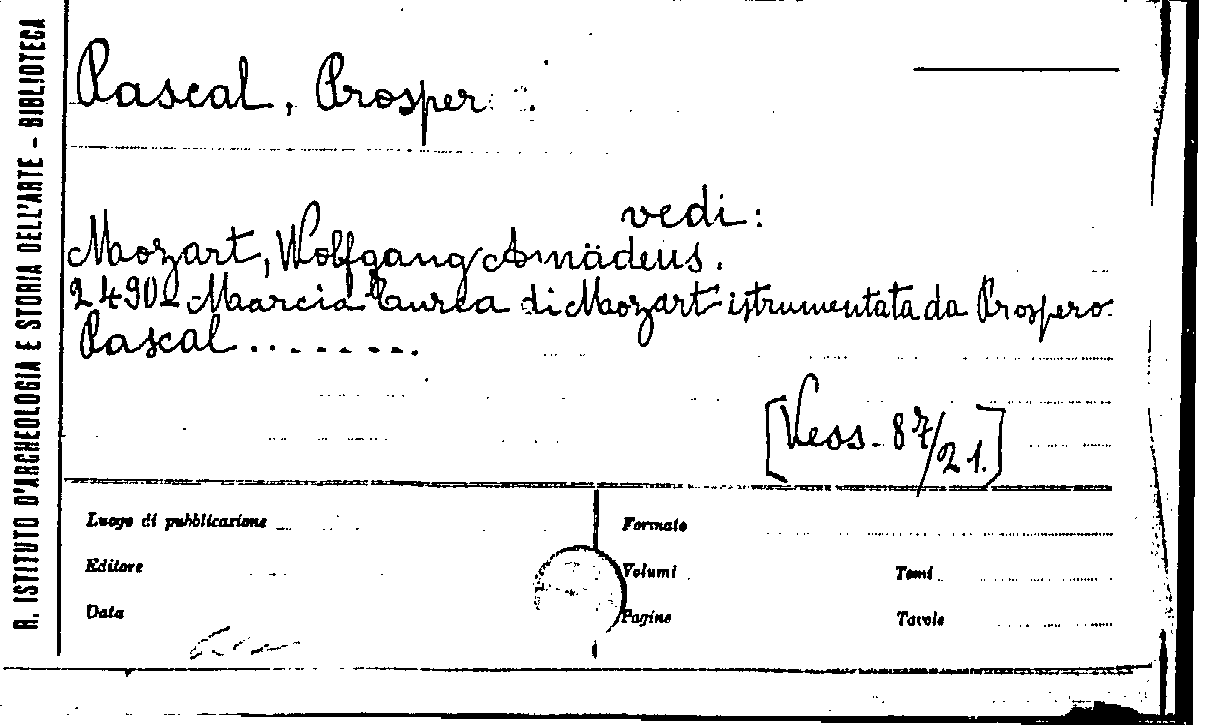 R. ISTITUTO D'ARCHEOLOGIA E STORIA DELL'ARTE - BIBLIOTECA
Pascal, Prosper
vedi:
Mozart, Wolfgang Amädeus.
2490 - Marcia Turca di Mozart istrumentata da Prospero
Pascal ........
[Vess. 87/21.]
Luogo di pubblicazione
Formato
Editore
Volumi
Tomi
Data
Pagine
Tavole